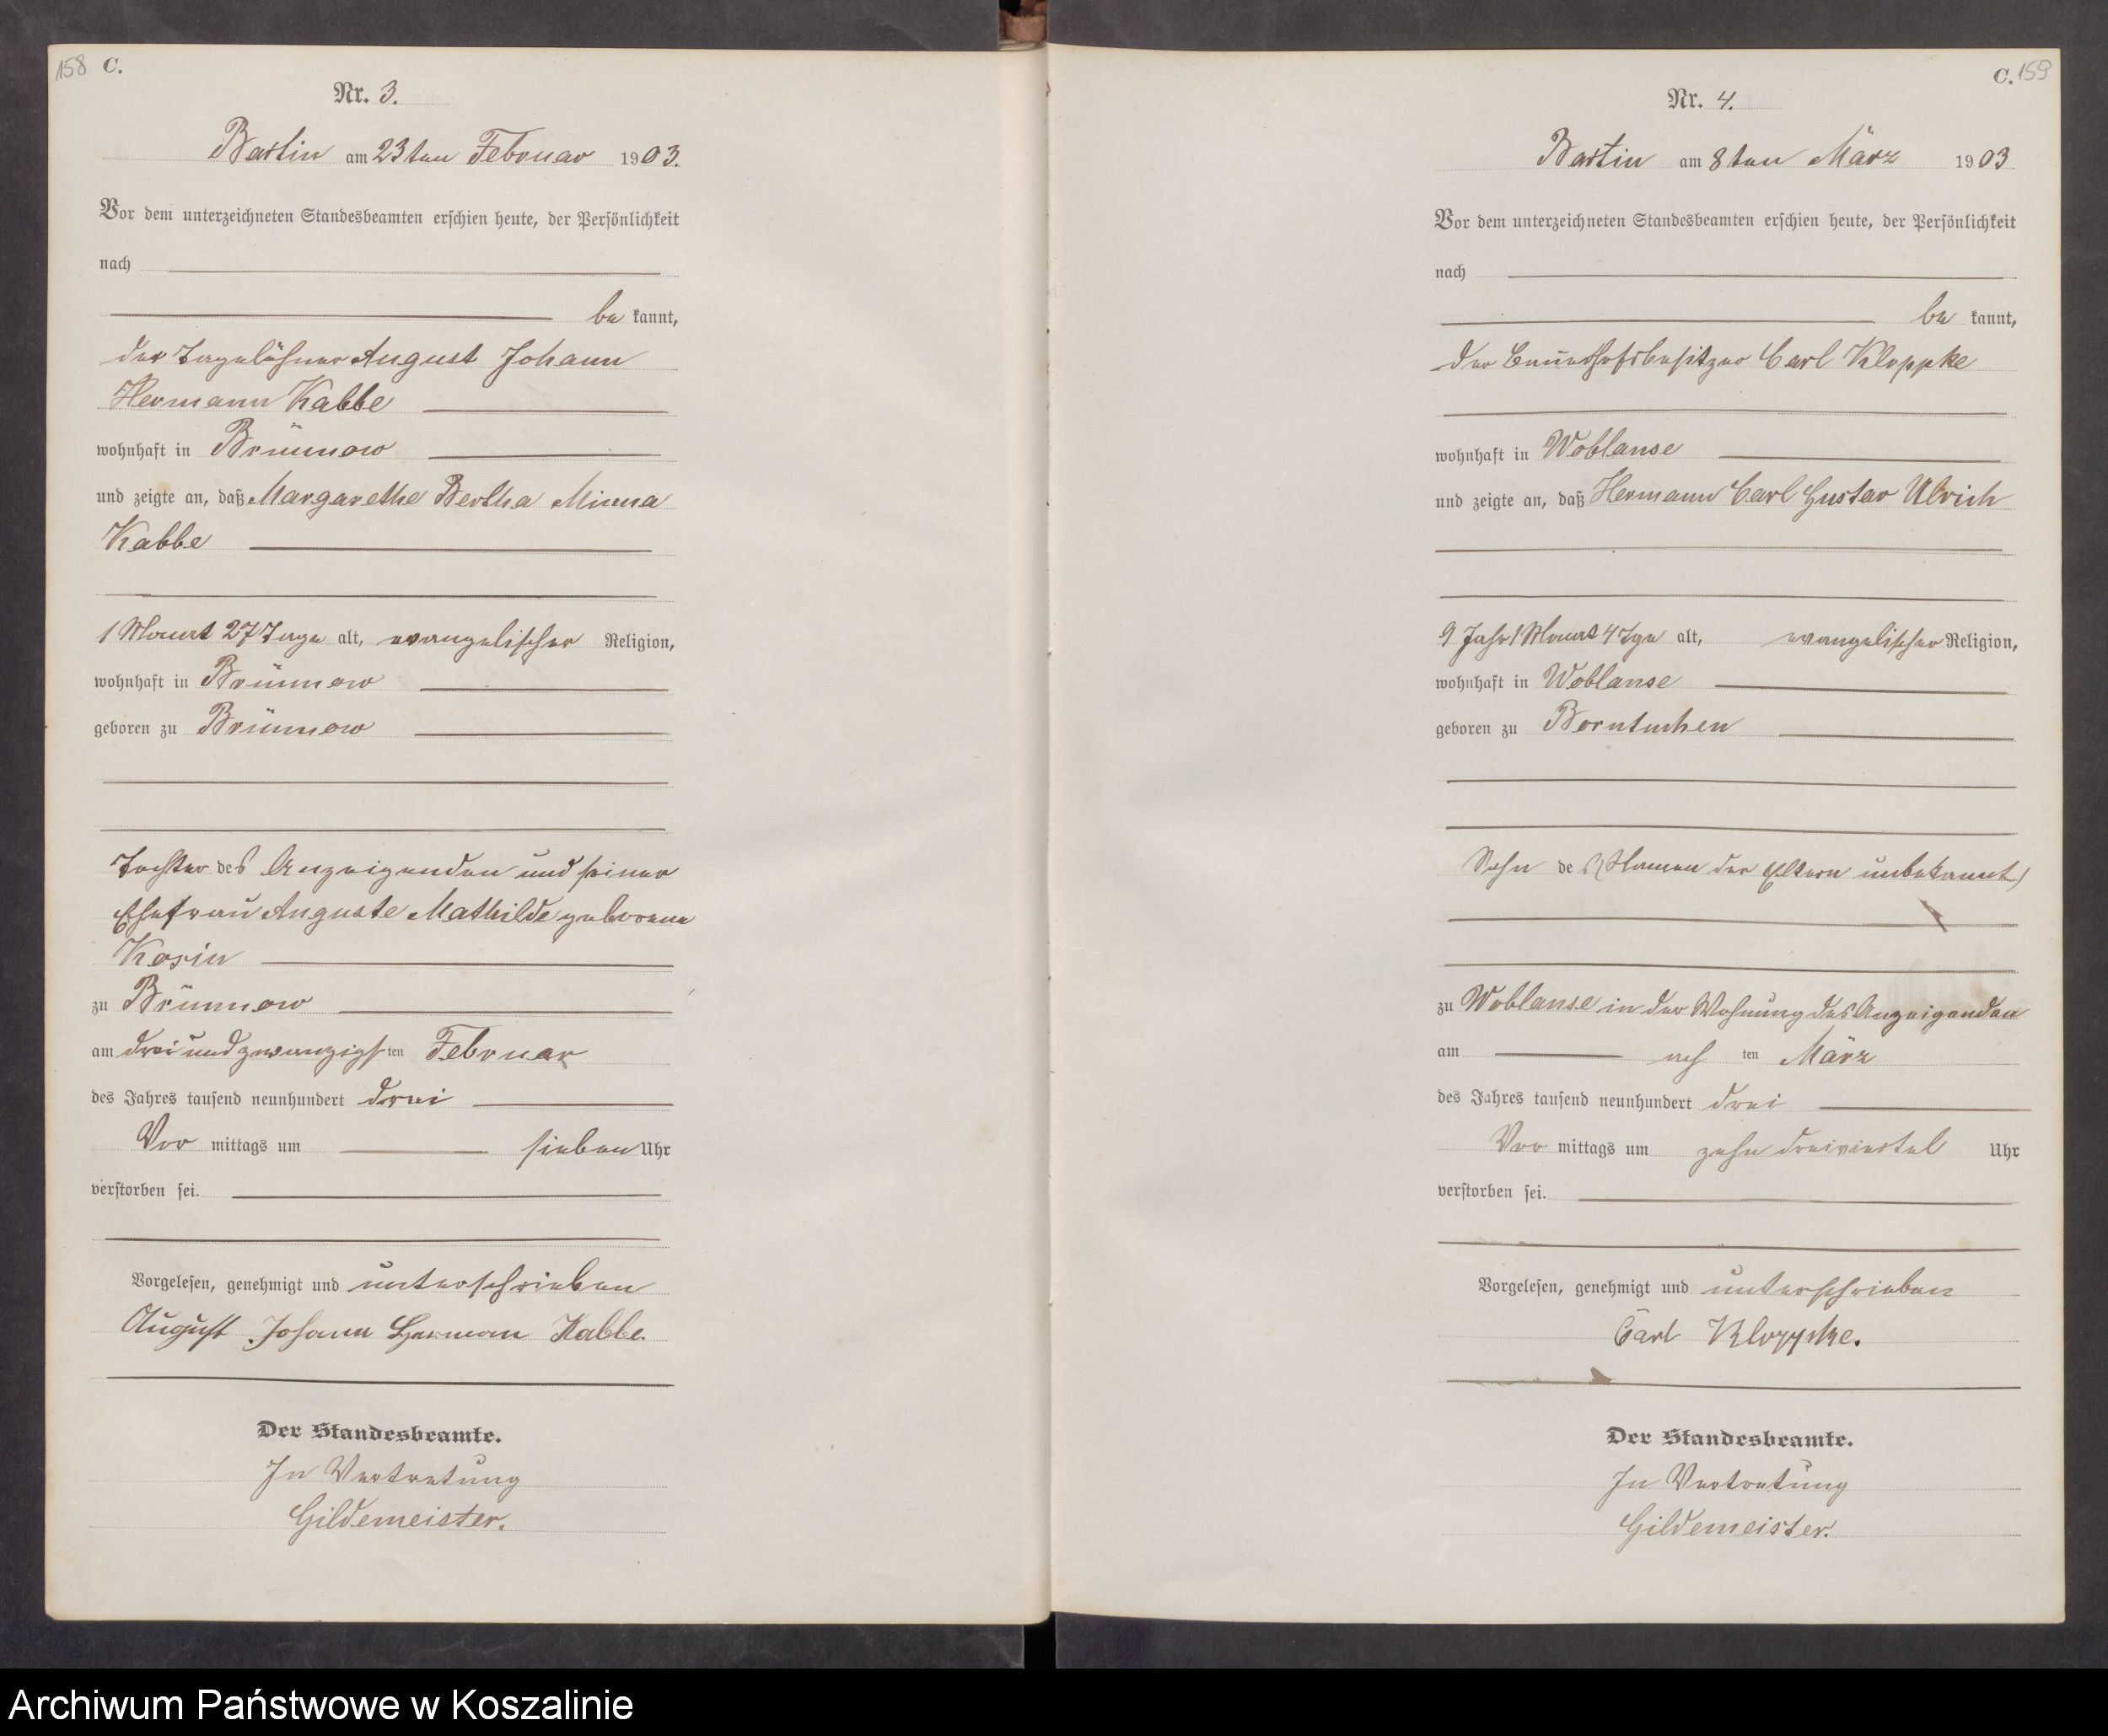 158 C.
Nr. 3.
Bartin am 23ten Februar 1903.
Vor dem unterzeichneten Standesbeamten erschien heute, der Persönlichkeit
nach
be kannt,
der Tagelöhner August Johann
Hermann Kabbe
wohnhaft in Brünnow
und zeigte an, daß Margarethe Bertha Minna
Kabbe
1 Monat 27 Tage alt, evangelischer Religion,
wohnhaft in Brünnow
geboren zu Brünnow
Tochter des Anzeigenden und seiner
Ehefrau Auguste Mathilde geborene
Kosin
zu Brünnow
am drei und zwanzigsten Februar
des Jahres tausend neunhundert drei
Vor mittags um sieben Uhr
verstorben sei.
Vorgelesen, genehmigt und unterschrieben
August Johann Herman Kabbe.
Der Standesbeamte.
In Vertretung
Gildemeister.
C. 159
Nr. 4.
Bartin am 8ten März 1903
Vor dem unterzeichneten Standesbeamten erschien heute, der Persönlichkeit
nach
be kannt,
der Bauerhofsbesitzer Carl Kloppke
wohnhaft in Woblanse
und zeigte an, daß Hermann Carl Gustav Ulrich
9 Jahr 1 Monat 4 Tge alt, evangelischer Religion,
wohnhaft in Woblanse
geboren zu Borntuchen
Sohn des (Namen der Eltern unbekannt)
zu Woblanse in der Wohnung des Anzeigenden
am achten März
des Jahres tausend neunhundert drei
Vor mittags um zehn dreiviertel Uhr
verstorben sei.
Vorgelesen, genehmigt und unterschrieben
Carl Kloppke.
Der Standesbeamte.
In Vertretung
Gildemeister.
Archiwum Państwowe w Koszalinie